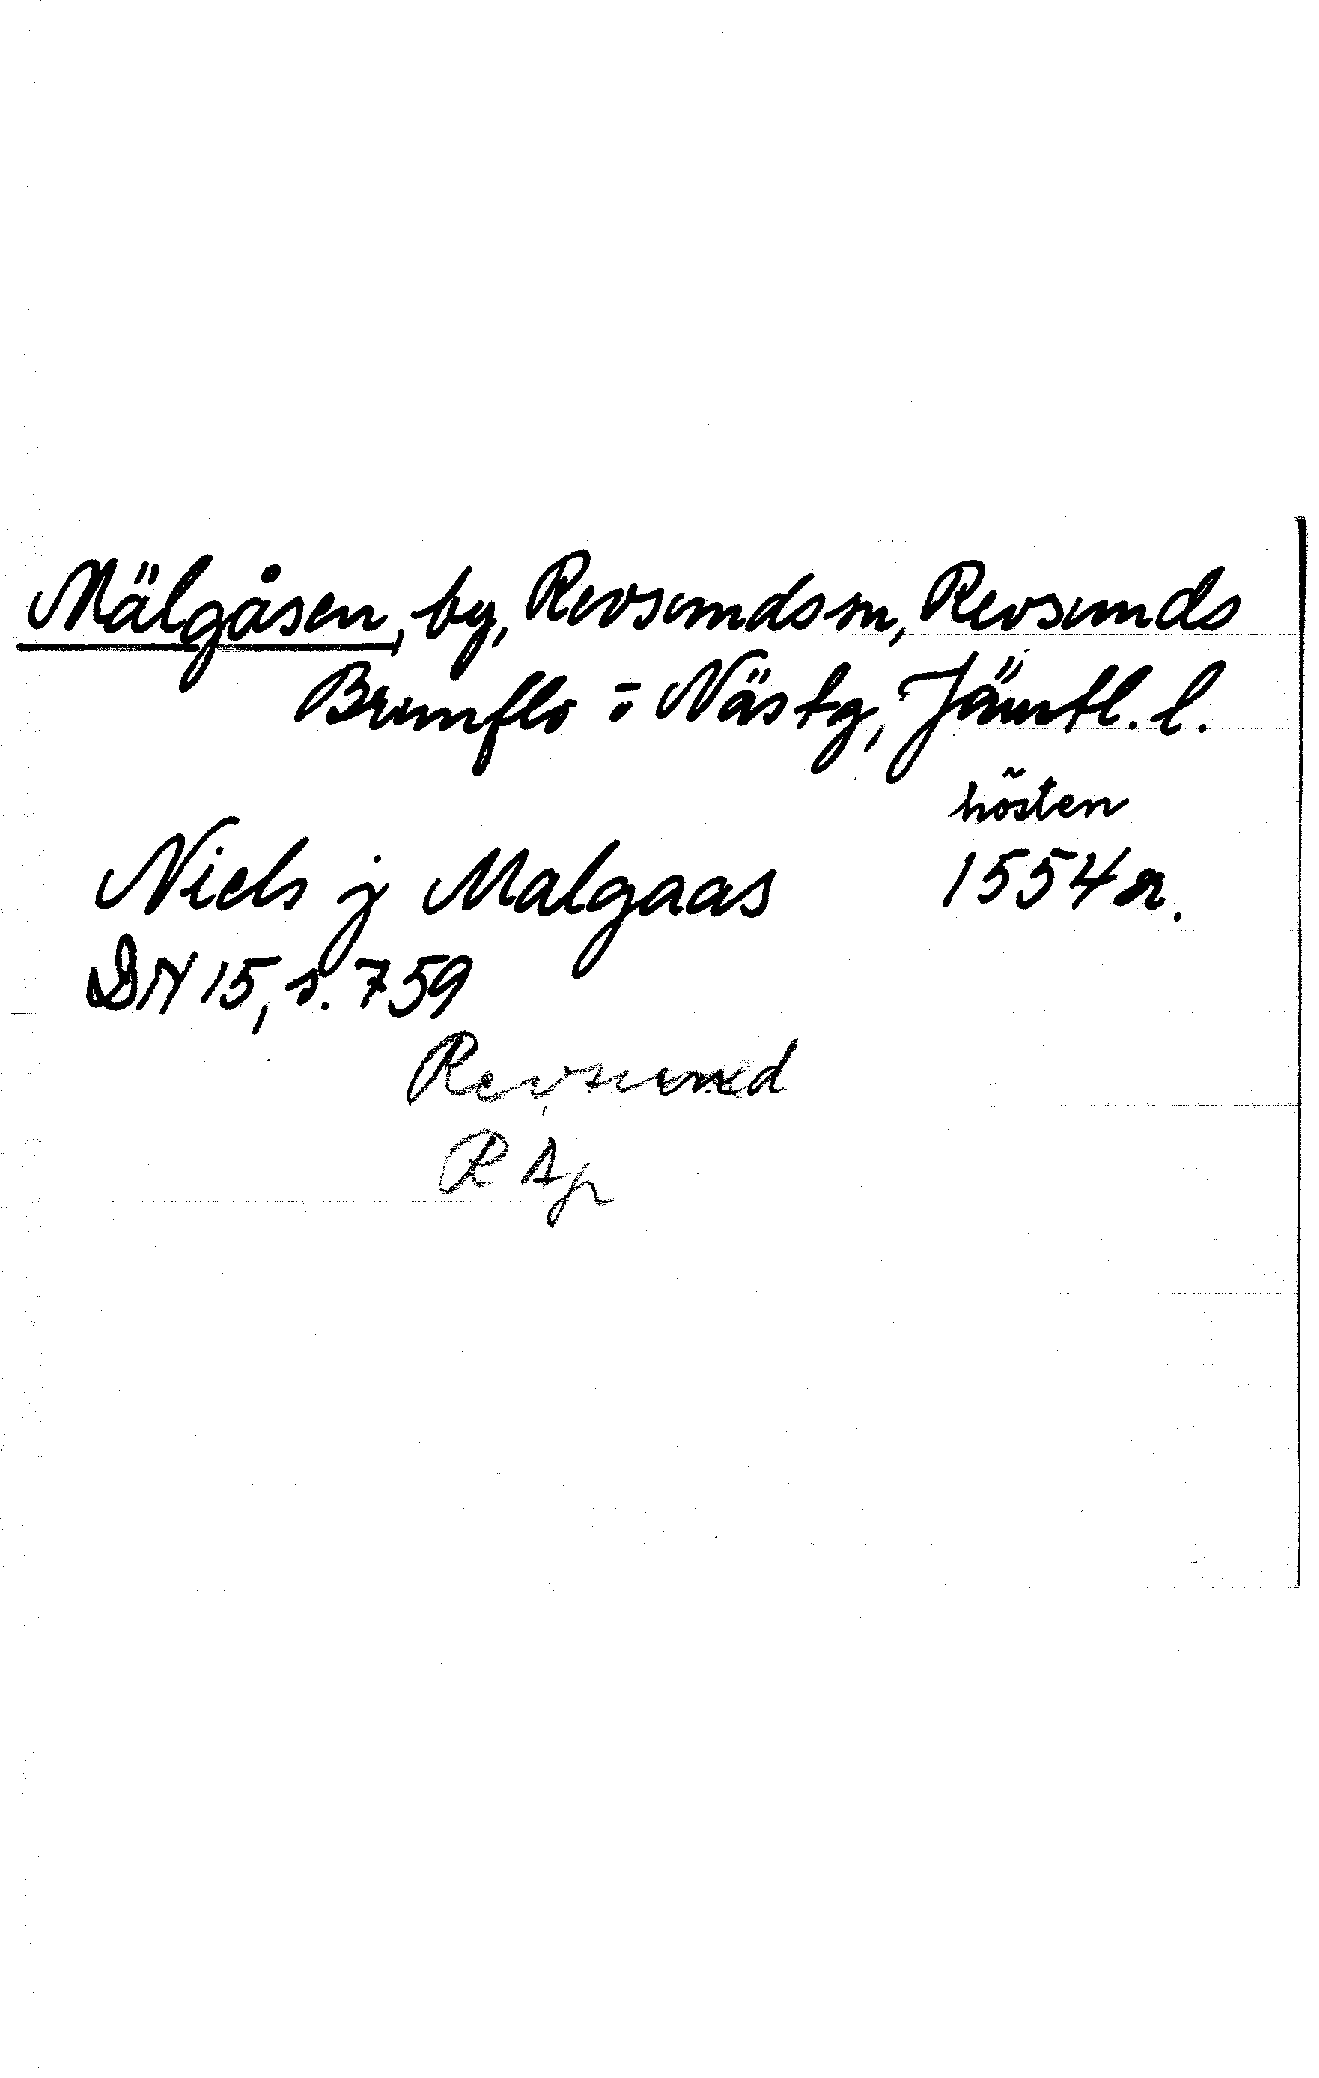 Mälgåsen, by, Revsunds sn, Revsunds
Brunflo o Näs tg, Jämtl. l.
hösten
Niels j Malgaas 1554 or.
DN 15, s. 759
Revsund
R Ap